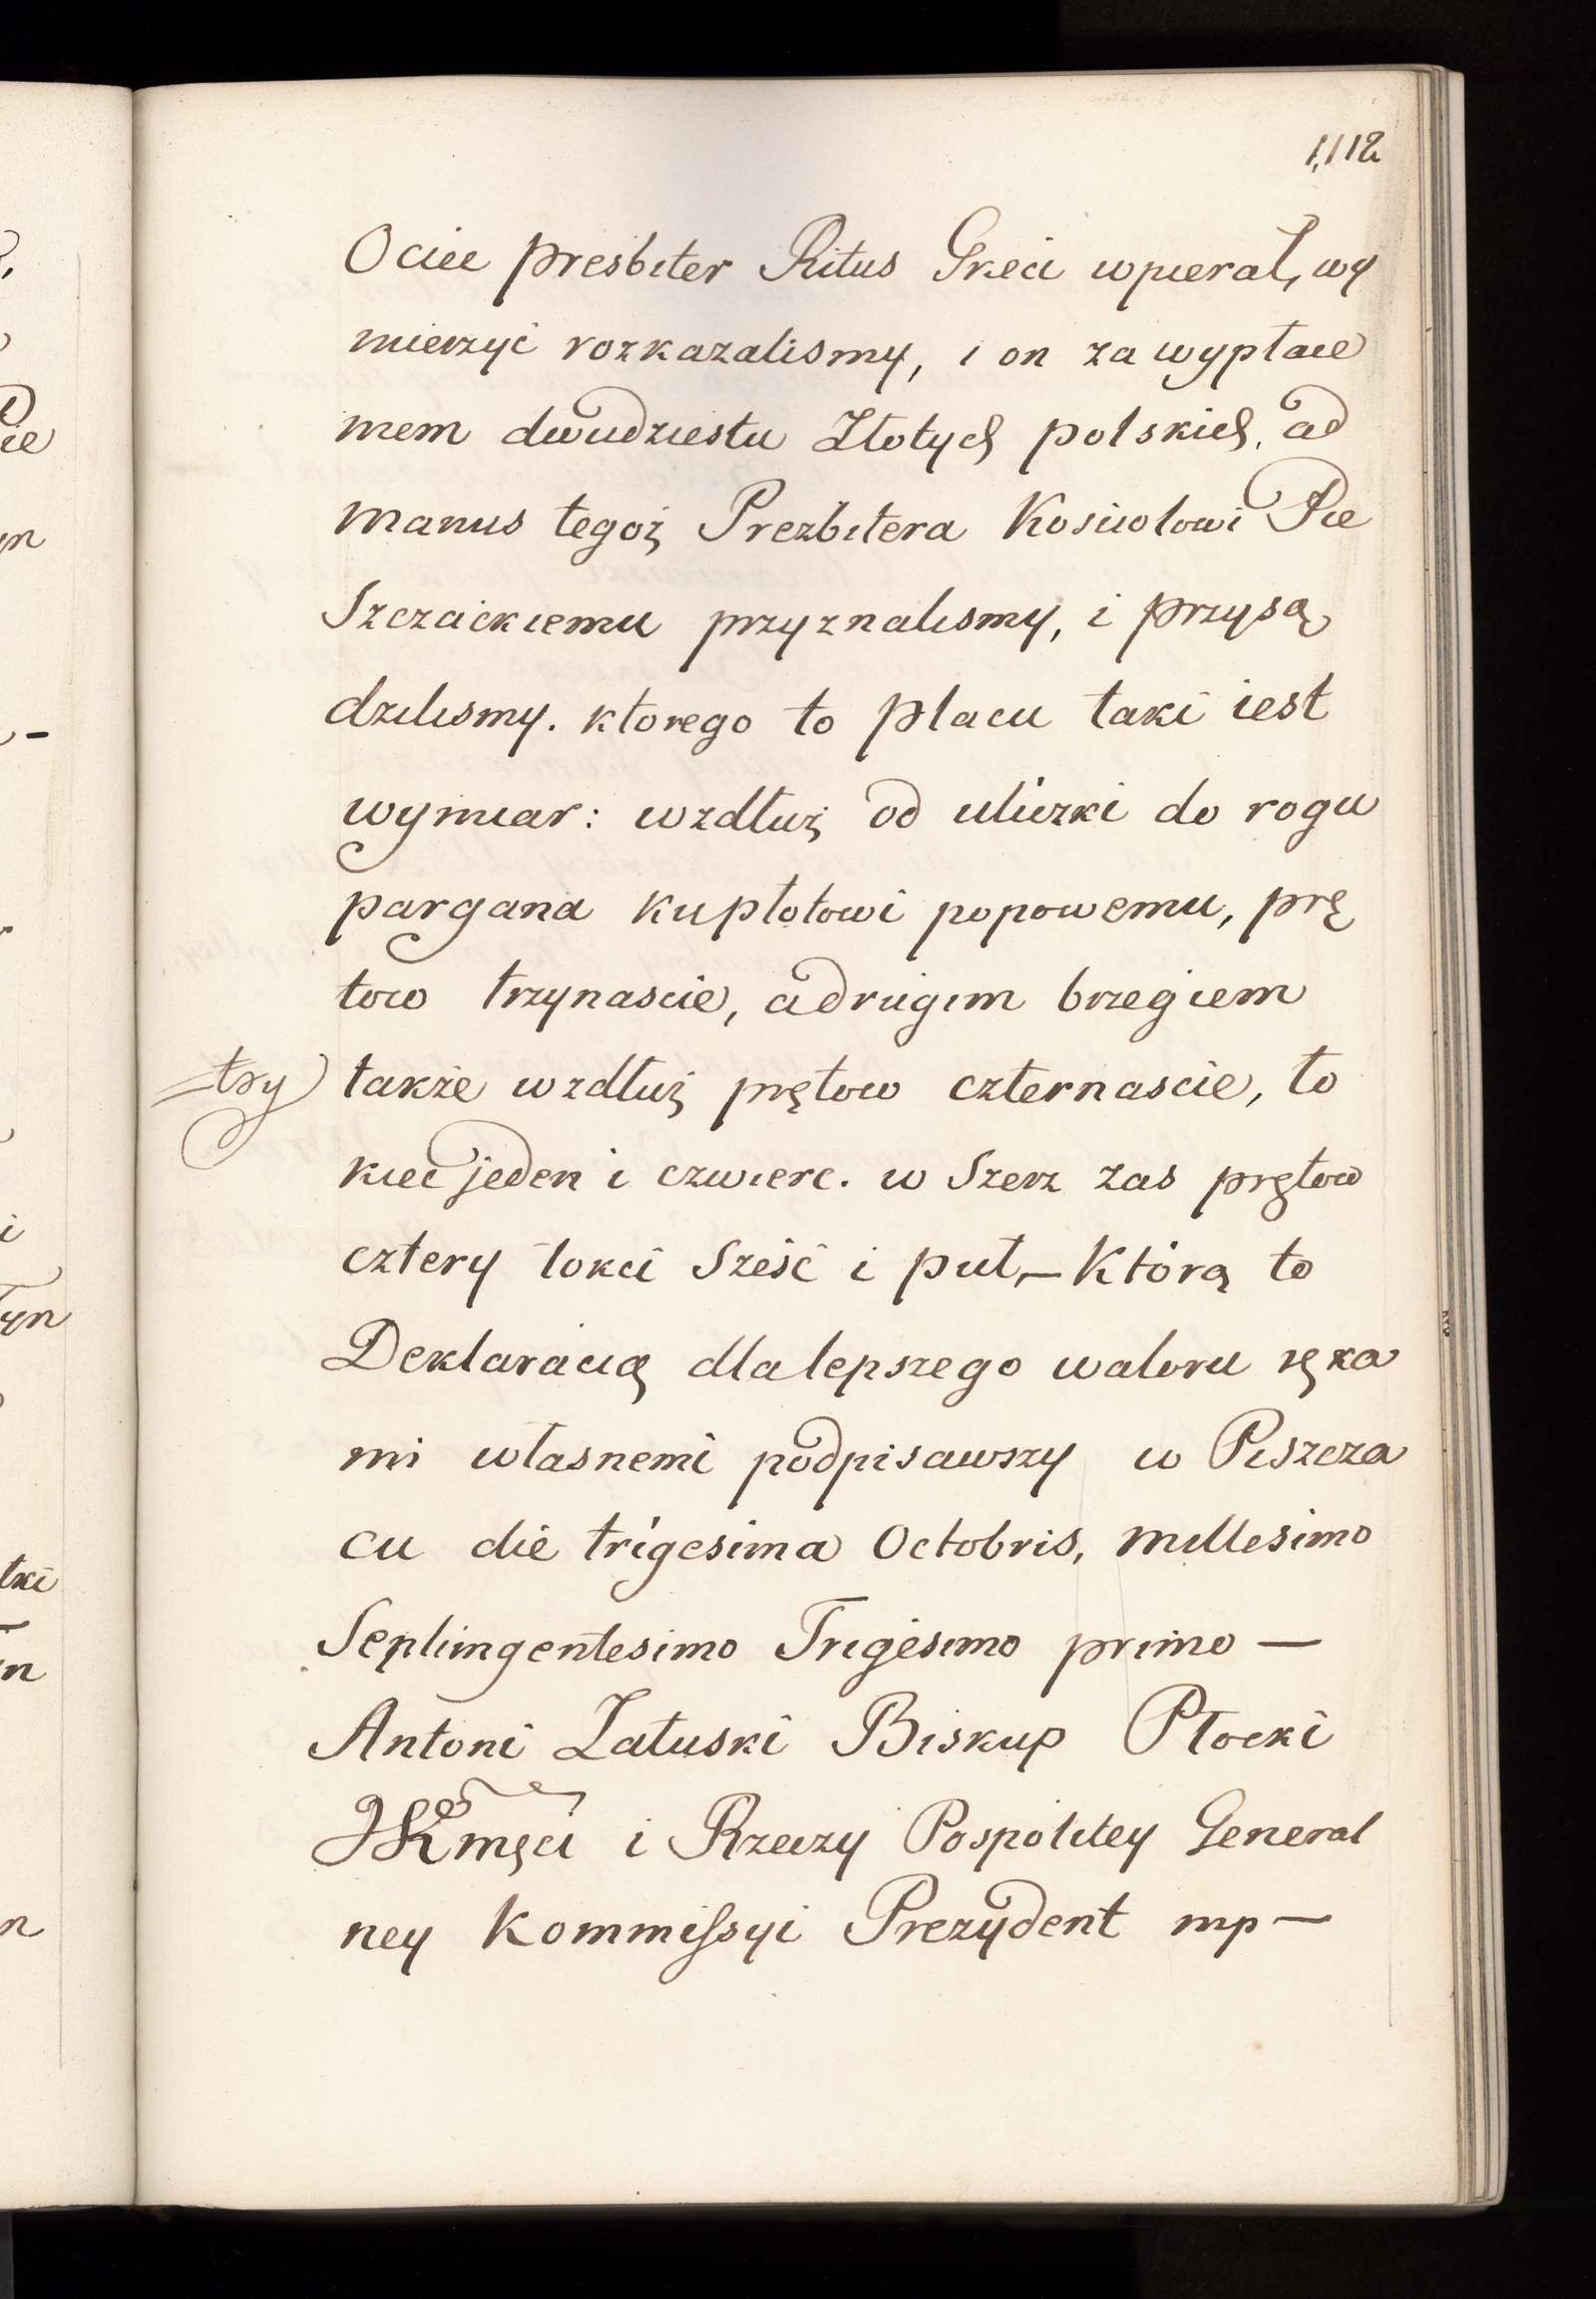 1,112
Ociec presbiter Ritus Greci wpierał, wy
mierzyć rozkazalismy, i on za wypłace
niem dwudziestu Złotych polskich, ad
manus tegoż Prezbitera Kosciołowi Pie
Szczaickiemu przyznalismy, i przysą
dzilismy. ktorego to placu taki iest
wymiar: wzdłuż od uliczki do rogu
pargana ku płotowi popowemu, prę
tow trzynascie, a drugim brzegiem
=try także wzdłuż prętow czternascie, ło
kieć jeden i czwierc. w Szerz zas prętow
cztery łokci Sześć i puł,— Którą to
Deklaracią dla lepszego waloru ręka
mi własnemi podpisawszy w Piszcza
cu die trigesima Octobris, millesimo
Septingentesimo Trigesimo primo —
Antoni Załuski Biskup Płocki
JKmęci i Rzeczy Pospolitey General
ney Kommissyi Prezydent mp —